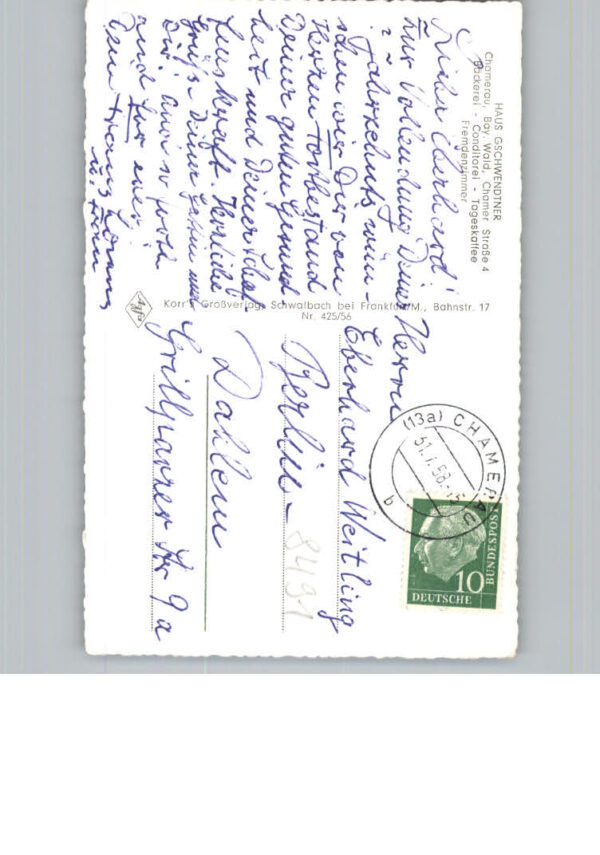 HAUS GSCHWENDTNER
Chamerau, Bay. Wald, Chamer Straße 4
Bäckerei - Conditorei - Tageskaffee
Fremdenzimmer
Lieber Eberhard!
Zur Vollendung Deines
? ? Jahrzehnts wün-
schen wir Dir von
Herzen Fortbestand
Deiner guten Gesund
heit und Deiner Schaf-
fenskraft. Herzliche
Grüße Deiner
Dir!
und für
Dein
Agfa
Korr's Großverlag, Schwalbach bei Frankfurt/M., Bahnstr. 17
Nr. 425/56
Herrn
Eberhard Weitling
Berlin-
8491
Dahlem
Grillparzer Str 9a
(13a) CHAMERAU
b
10
DEUTSCHE
BUNDESPOST